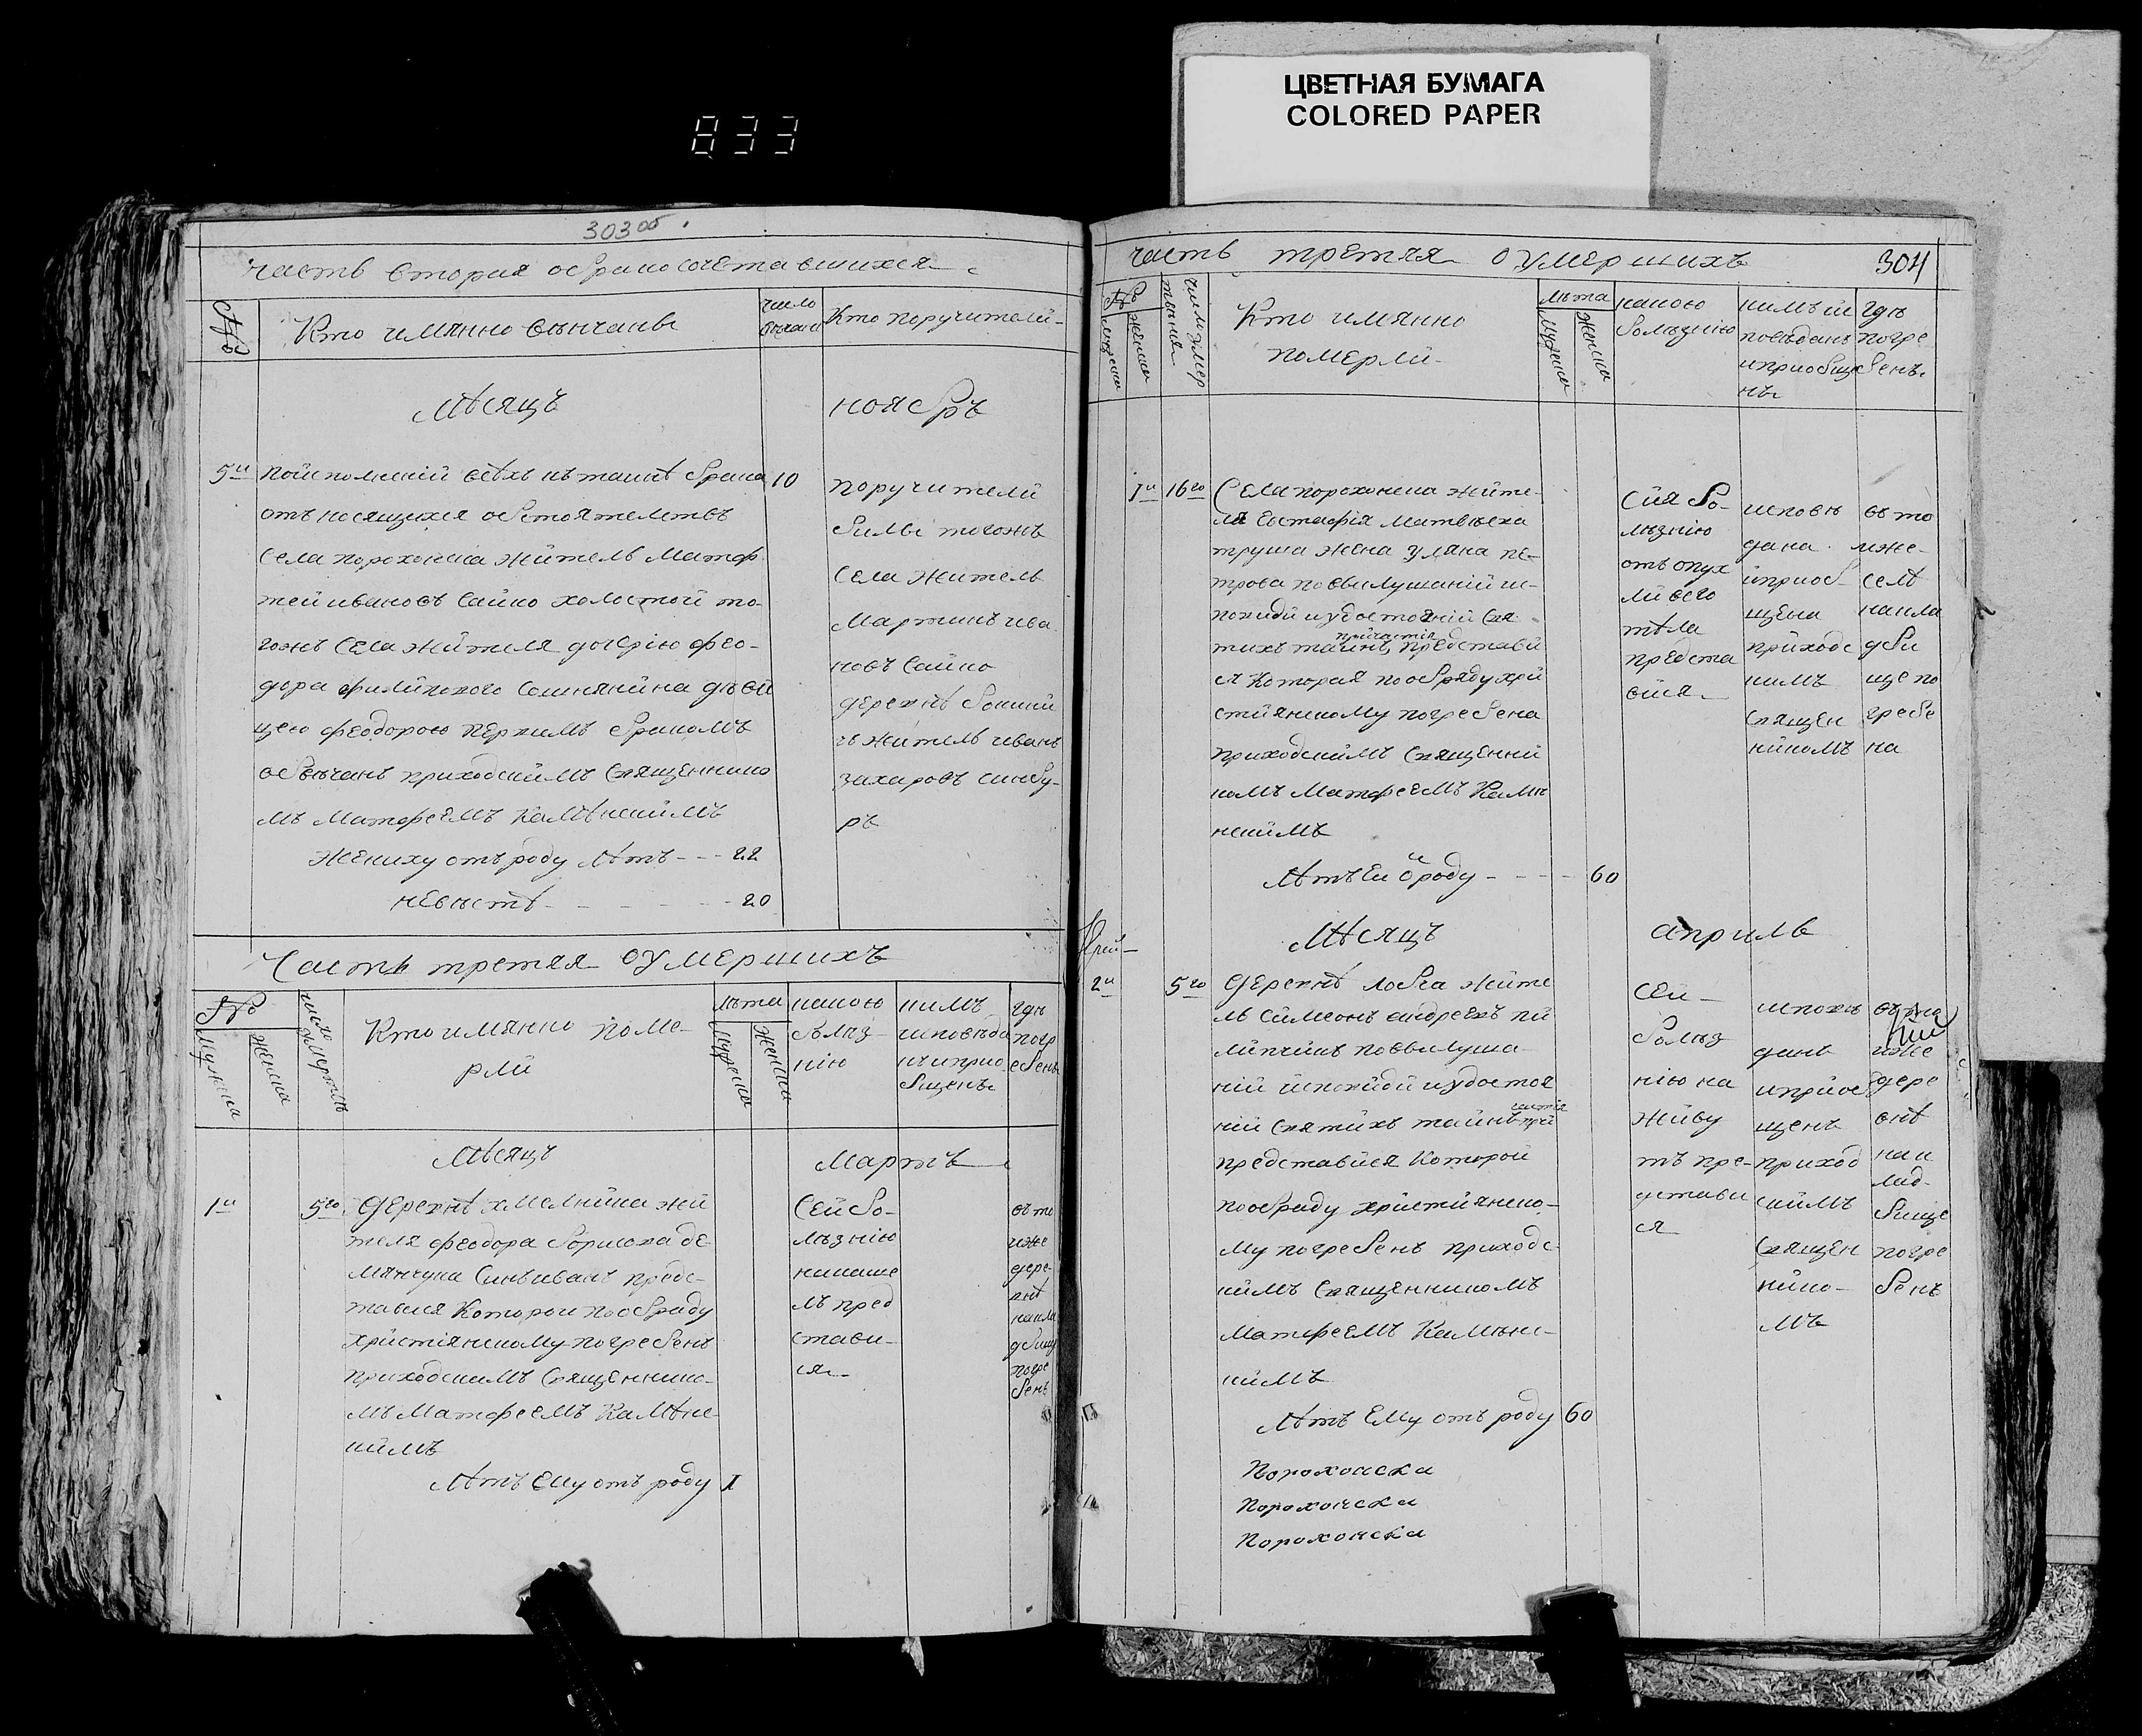 ЦВЕТНАЯ БУМАГА
COLORED PAPER
833
303 об
часть вторая обракосочетавшихся
№
Кто имянно венчаны
число
Кто поручители
Мѣсяцъ
ноябрь
5й
10
отъ носящихся обстоятелствъ
села порохонска жителъ Матф
тей ивановъ Сайко холостой то
гожъ села жителя дочерію фео
дора филипского
цею феодорою первимъ бракомъ
обвѣчанъ приходскимъ священнико
мъ Матфеемъ Камѣнскимъ
жениху отъ роду лѣтъ - - - 22
невѣстѣ - - - 20
поручители
били тогожъ
села жителъ
Мартинъ ива
новъ Сайко
деревнѣ
ъ жителъ иванъ
захаровъ
ръ
Часть третяя оумершихъ
№
мужска
женска
Кто имянно поме
рли
лѣта
мужска
женска
какою
болѣз
нію
кимъ
исповѣда
нъ иприо
бщенъ
гдѣ
погр
ебенъ
Мѣсяцъ
Мартъ
1й
5го
деревнѣ хмелника жи
теля феодора борисова де
мянчука синъ иванъ предс
тавися которой пообряду
християнскому погребенъ
приходскимъ священнико
мъ Матфеемъ Камѣнс
кимъ
лѣтъ ему отъ роду 1
Сей бо
лѣзнію
накаше
лъ пред
стави
ся
въ то
йже
дере
внѣ
накла
дбищ
погре
бенъ
часть третяя оумершихъ
304
№
мужска
женска
Кто имянно
померли
лѣта
мужска
женска
какою
болѣзнію
кимъ ис
повѣданъ
иприобще
нъ
гдѣ
погре
бенъ
1й
16го
Села порохонска жите
ля Евстафія Матвѣева
труша жена уляна пе
трова повислушаній ис
повиди иудостояній свя
тихъ таинъ причастія представи
ся которая пообряду хри
стиянскому погребена
приходскимъ священни
комъ Матфеемъ Камѣ
нскимъ
лѣтъ ей о роду - - - 60
Сія бо
лѣзнію
отъ опух
ли всего
тѣла
предста
вися
исповѣ
дана
иприоб
щена
приходс
кимъ
священ
никомъ
въ то
мже
селѣ
накла
дби
ще по
гребе
на
Мѣсяцъ
априль
2й
5го
деревнѣ лобча жите
лъ симеонъ андреевъ пи
липчикъ повислуша
ній исповиди иудостоя
ній святихъ таинъ причастія
представися которой
пообряду християнско
му погребенъ приходс
кимъ священникомъ
Матфеемъ Камѣнс
кимъ
лѣтъ ему отъ роду 60
Сей
болѣз
нію на
живо
тъ пре
дстави
ся
исповѣ
данъ
иприоб
щенъ
приход
скимъ
священ
нико
мъ
йже
дере
внѣ
нак
лад
бище
погре
бенъ
Порохонска
Порохонска
Порохонска